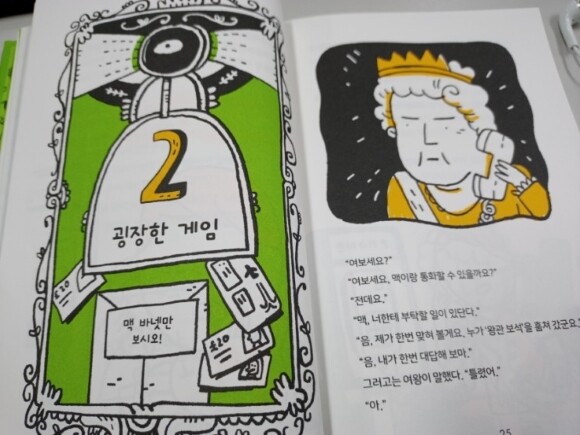 2
굉장한 게임
£20
맥 바넷만
보시오!
£20
"여보세요?"
"여보세요, 맥이랑 통화할 수 있을까요?"
"전데요."
"맥, 너한테 부탁할 일이 있단다."
"음, 제가 한번 맞혀 볼게요. 누가 '왕관 보석'을 훔쳐 갔군요."
"음, 내가 한번 대답해 보마."
그러고는 여왕이 말했다. "틀렸어."
"아."
25